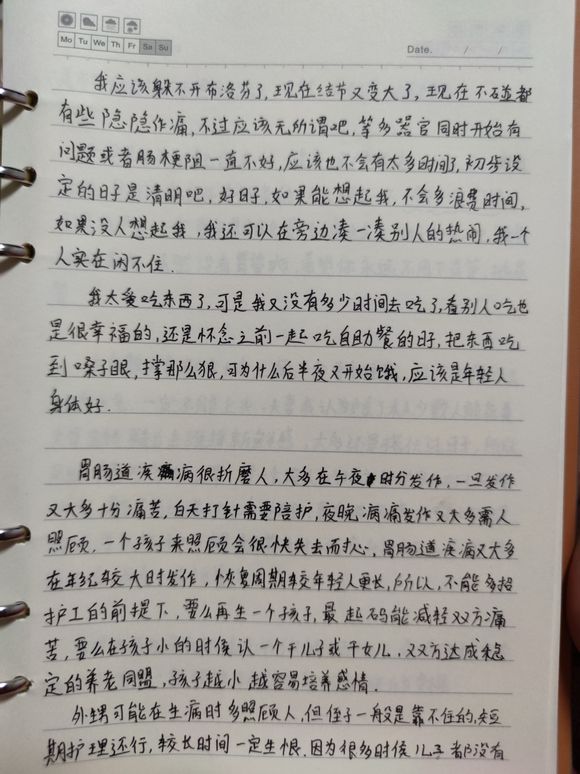 Mo Tu We Th Fr Sa Su
Date. / /
我应该躲不开布洛芬了,现在结节又变大了,现在不碰都
有些隐隐作痛,不过应该无所谓吧,等多器官同时开始有
问题或者肠梗阻一直不好,应该也不会有太多时间了,初步设
定的日子是清明吧,好日子,如果能想起我,不会多浪费时间,
如果没人想起我,我还可以在旁边凑一凑别人的热闹,我一个
人实在闲不住.
我太爱吃东西了,可是我又没有多少时间去吃了,看别人吃也
是很幸福的,还是怀念之前一起吃自助餐的日子,把东西吃
到嗓子眼,撑那么狠,可为什么后半夜又开始饿,应该是年轻人
身体好.
胃肠道疾病很折磨人,大多在午夜时分发作,一旦发作
又大多十分痛苦,白天打针需要陪护,夜晚病痛发作又大多需人
照顾.一个孩子来照顾会很快失去耐心,胃肠道疾病又大多
在年纪较大时发作,恢复周期较年轻人更长,所以,不能多招
护工的前提下,要么再生一个孩子,最起码能减轻双方痛
苦,要么在孩子小的时候认一个干儿子或干女儿,双方达成稳
定的养老同盟,孩子越小越容易培养感情.
外甥可能在生病时多照顾人,但侄子一般是靠不住的,短
期护理还行,较长时间一定生恨.因为很多时候儿子都没有